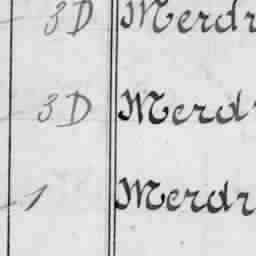 3D Merdr
3D Merdr
1 Merdr